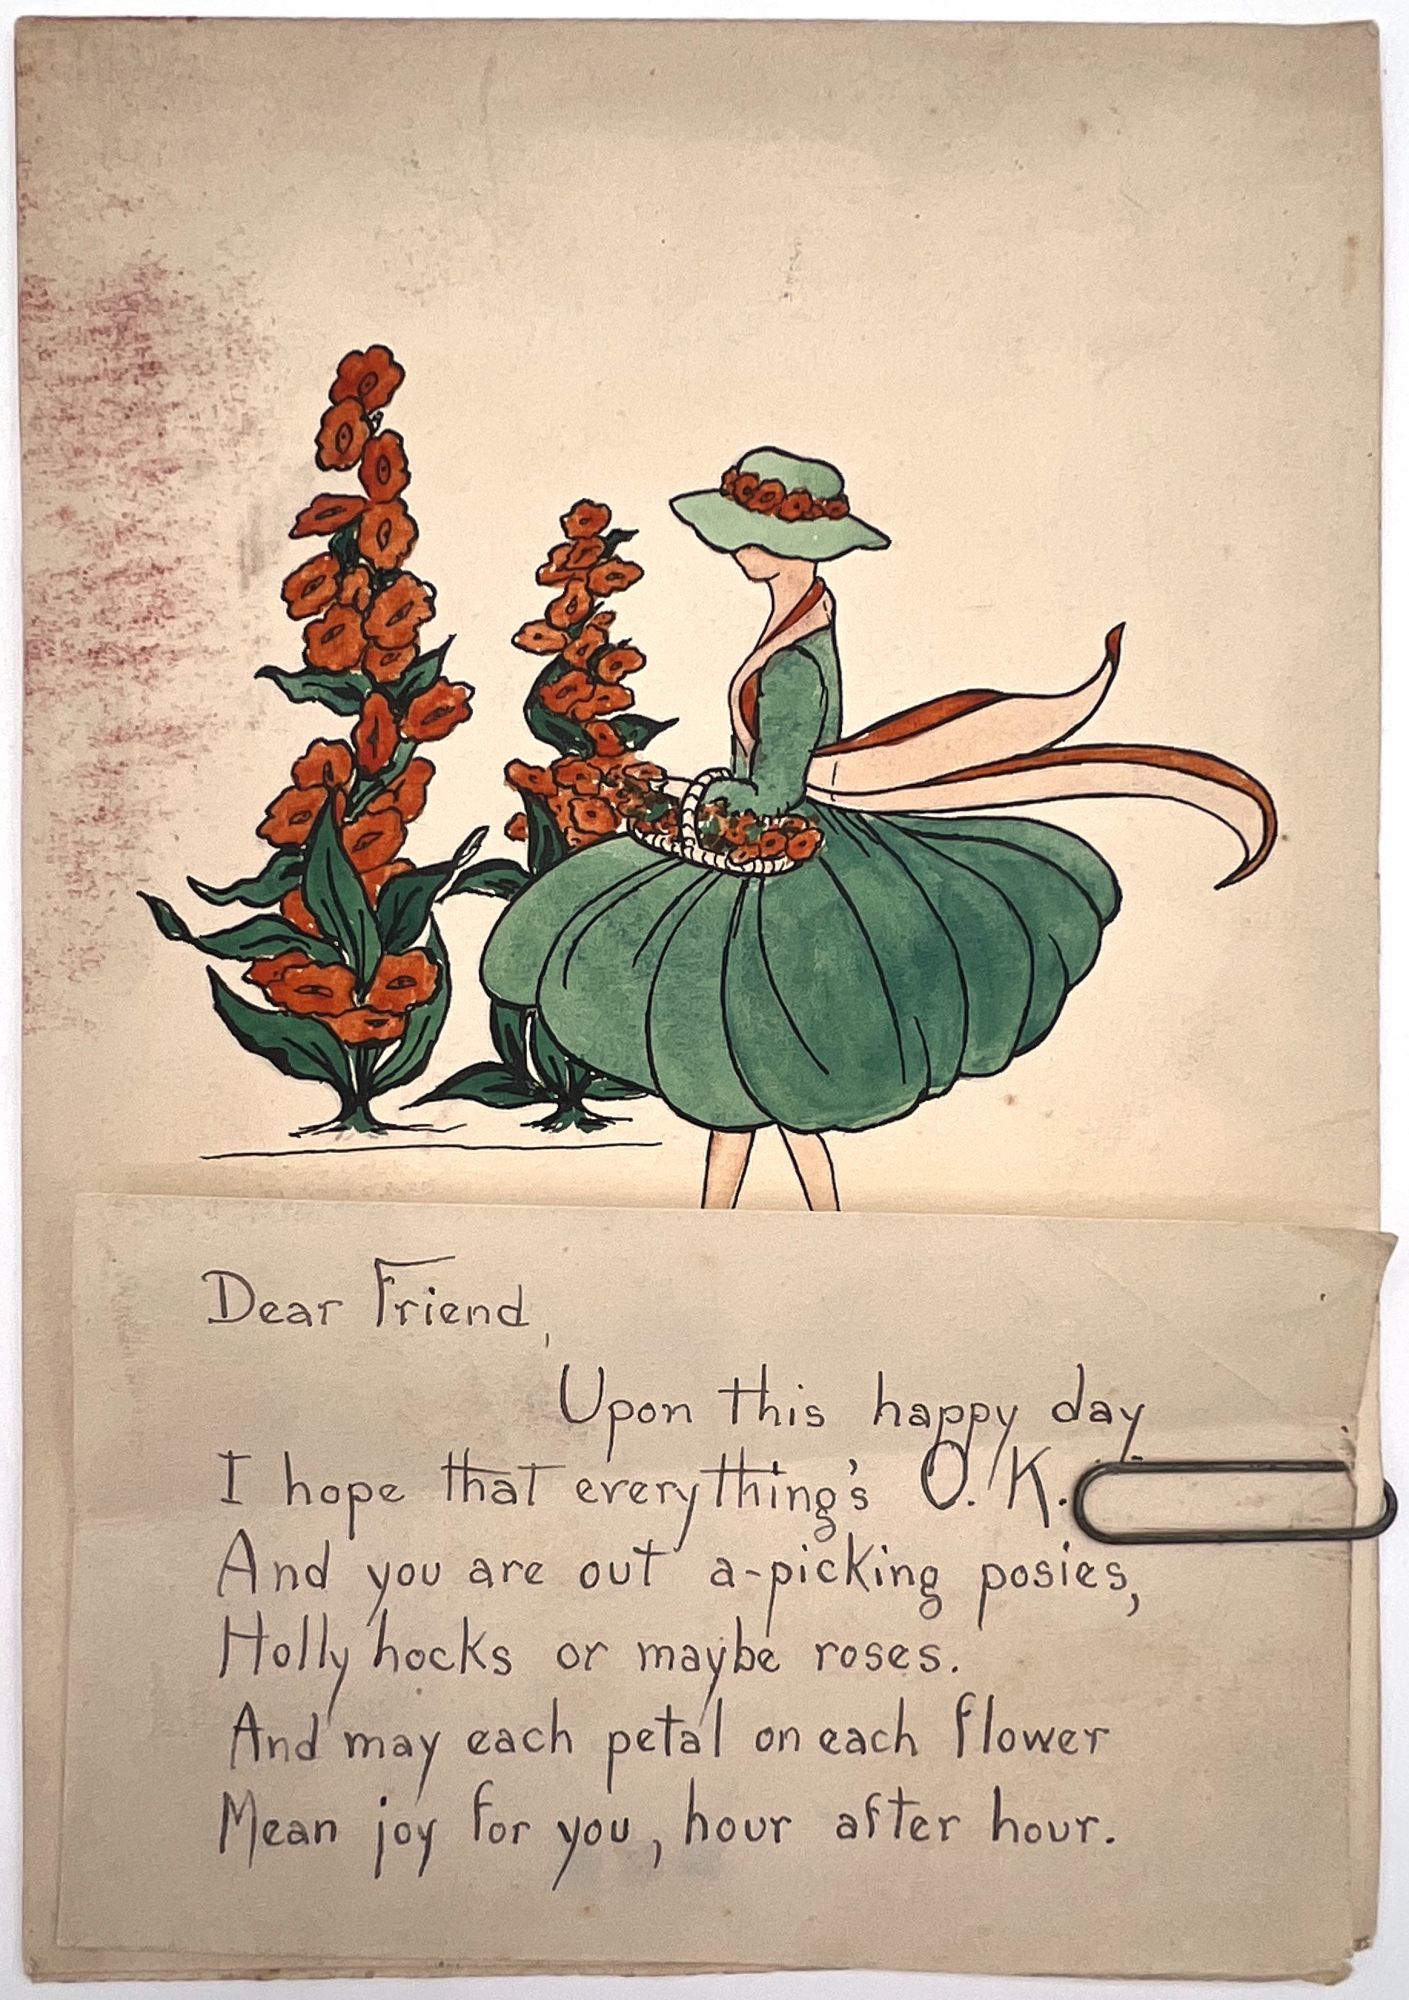 Dear Friend,
Upon this happy day
I hope that everything's O.K.
And you are out a-picking posies,
Hollyhocks or maybe roses.
And may each petal on each flower
Mean joy for you, hour after hour.